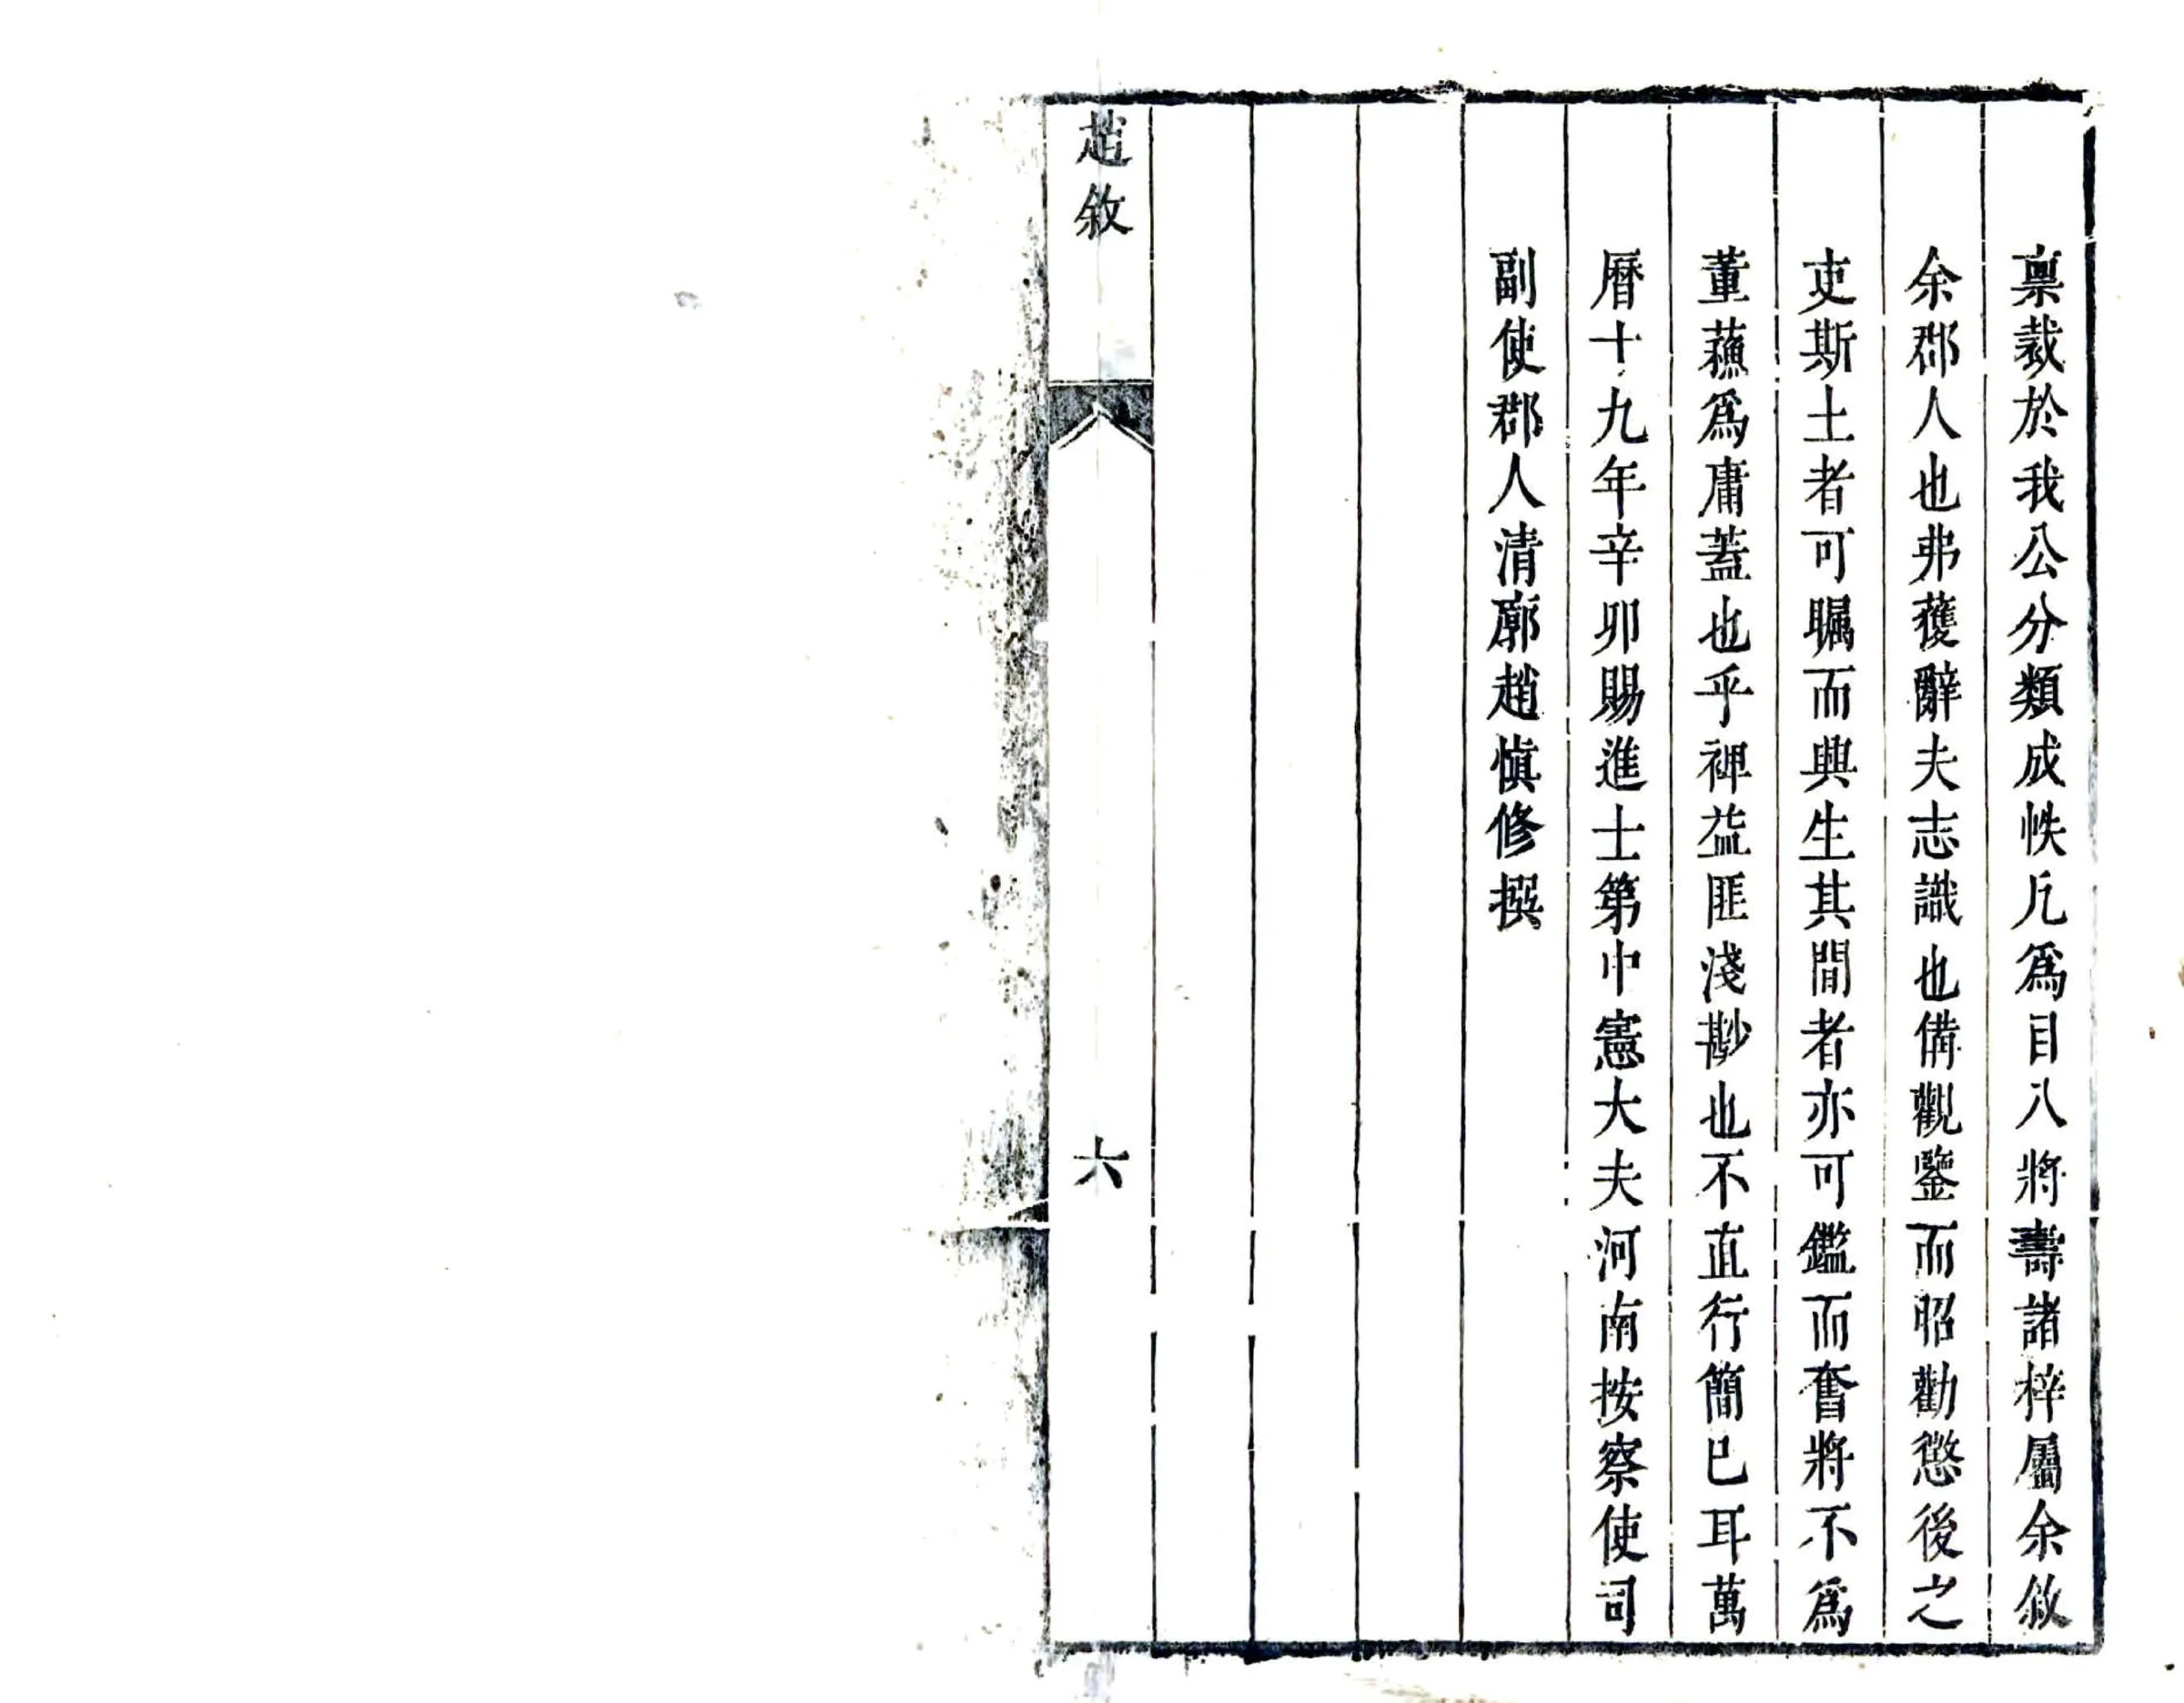 稟裁於我公分類成帙凢為目八將壽諸梓屬余敘
余郡人也弗獲辭夫志識也備觀鑒而昭勸懲後之
吏斯土者可矚而興生其間者亦可鑑而奮將不為
董蘓為庸葢也乎裨益匪淺尠也不直行簡已耳萬
曆十九年辛卯賜進士第中憲大夫河南按察使司
副使郡人清廓趙慎修撰
趙敘
六